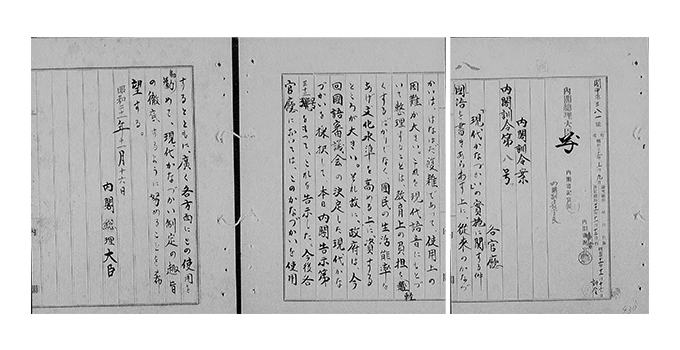 閣甲第八一號
内閣總理大臣
内閣書記官長
内閣訓令案
内閣訓令第八号
各官廳
「現代かなづかい」の實施に関する件
國語を書きあらわす上に、從來のかなづ
かいは、はなはだ複雜であって、使用上の
困難が大きい。これを現代語音にもとづ
いて整理することは、教育上の負担を軽
くするばかりでなく、國民の生活能率を
あげ、文化水準を高める上に、資する
ところが大きい。それ故に、政府は、今
回國語審議会の決定した現代かな
づかいを採択して、本日内閣告示第
三十三号をもって、これを告示した。今後各
官廳においては、このかなづかいを使用
するとともに、廣く各方面にこの使用を
勧めて、現代かなづかい制定の趣旨
の徹底するように努めることを希
望する。
昭和二十一年十一月十六日
内閣總理大臣